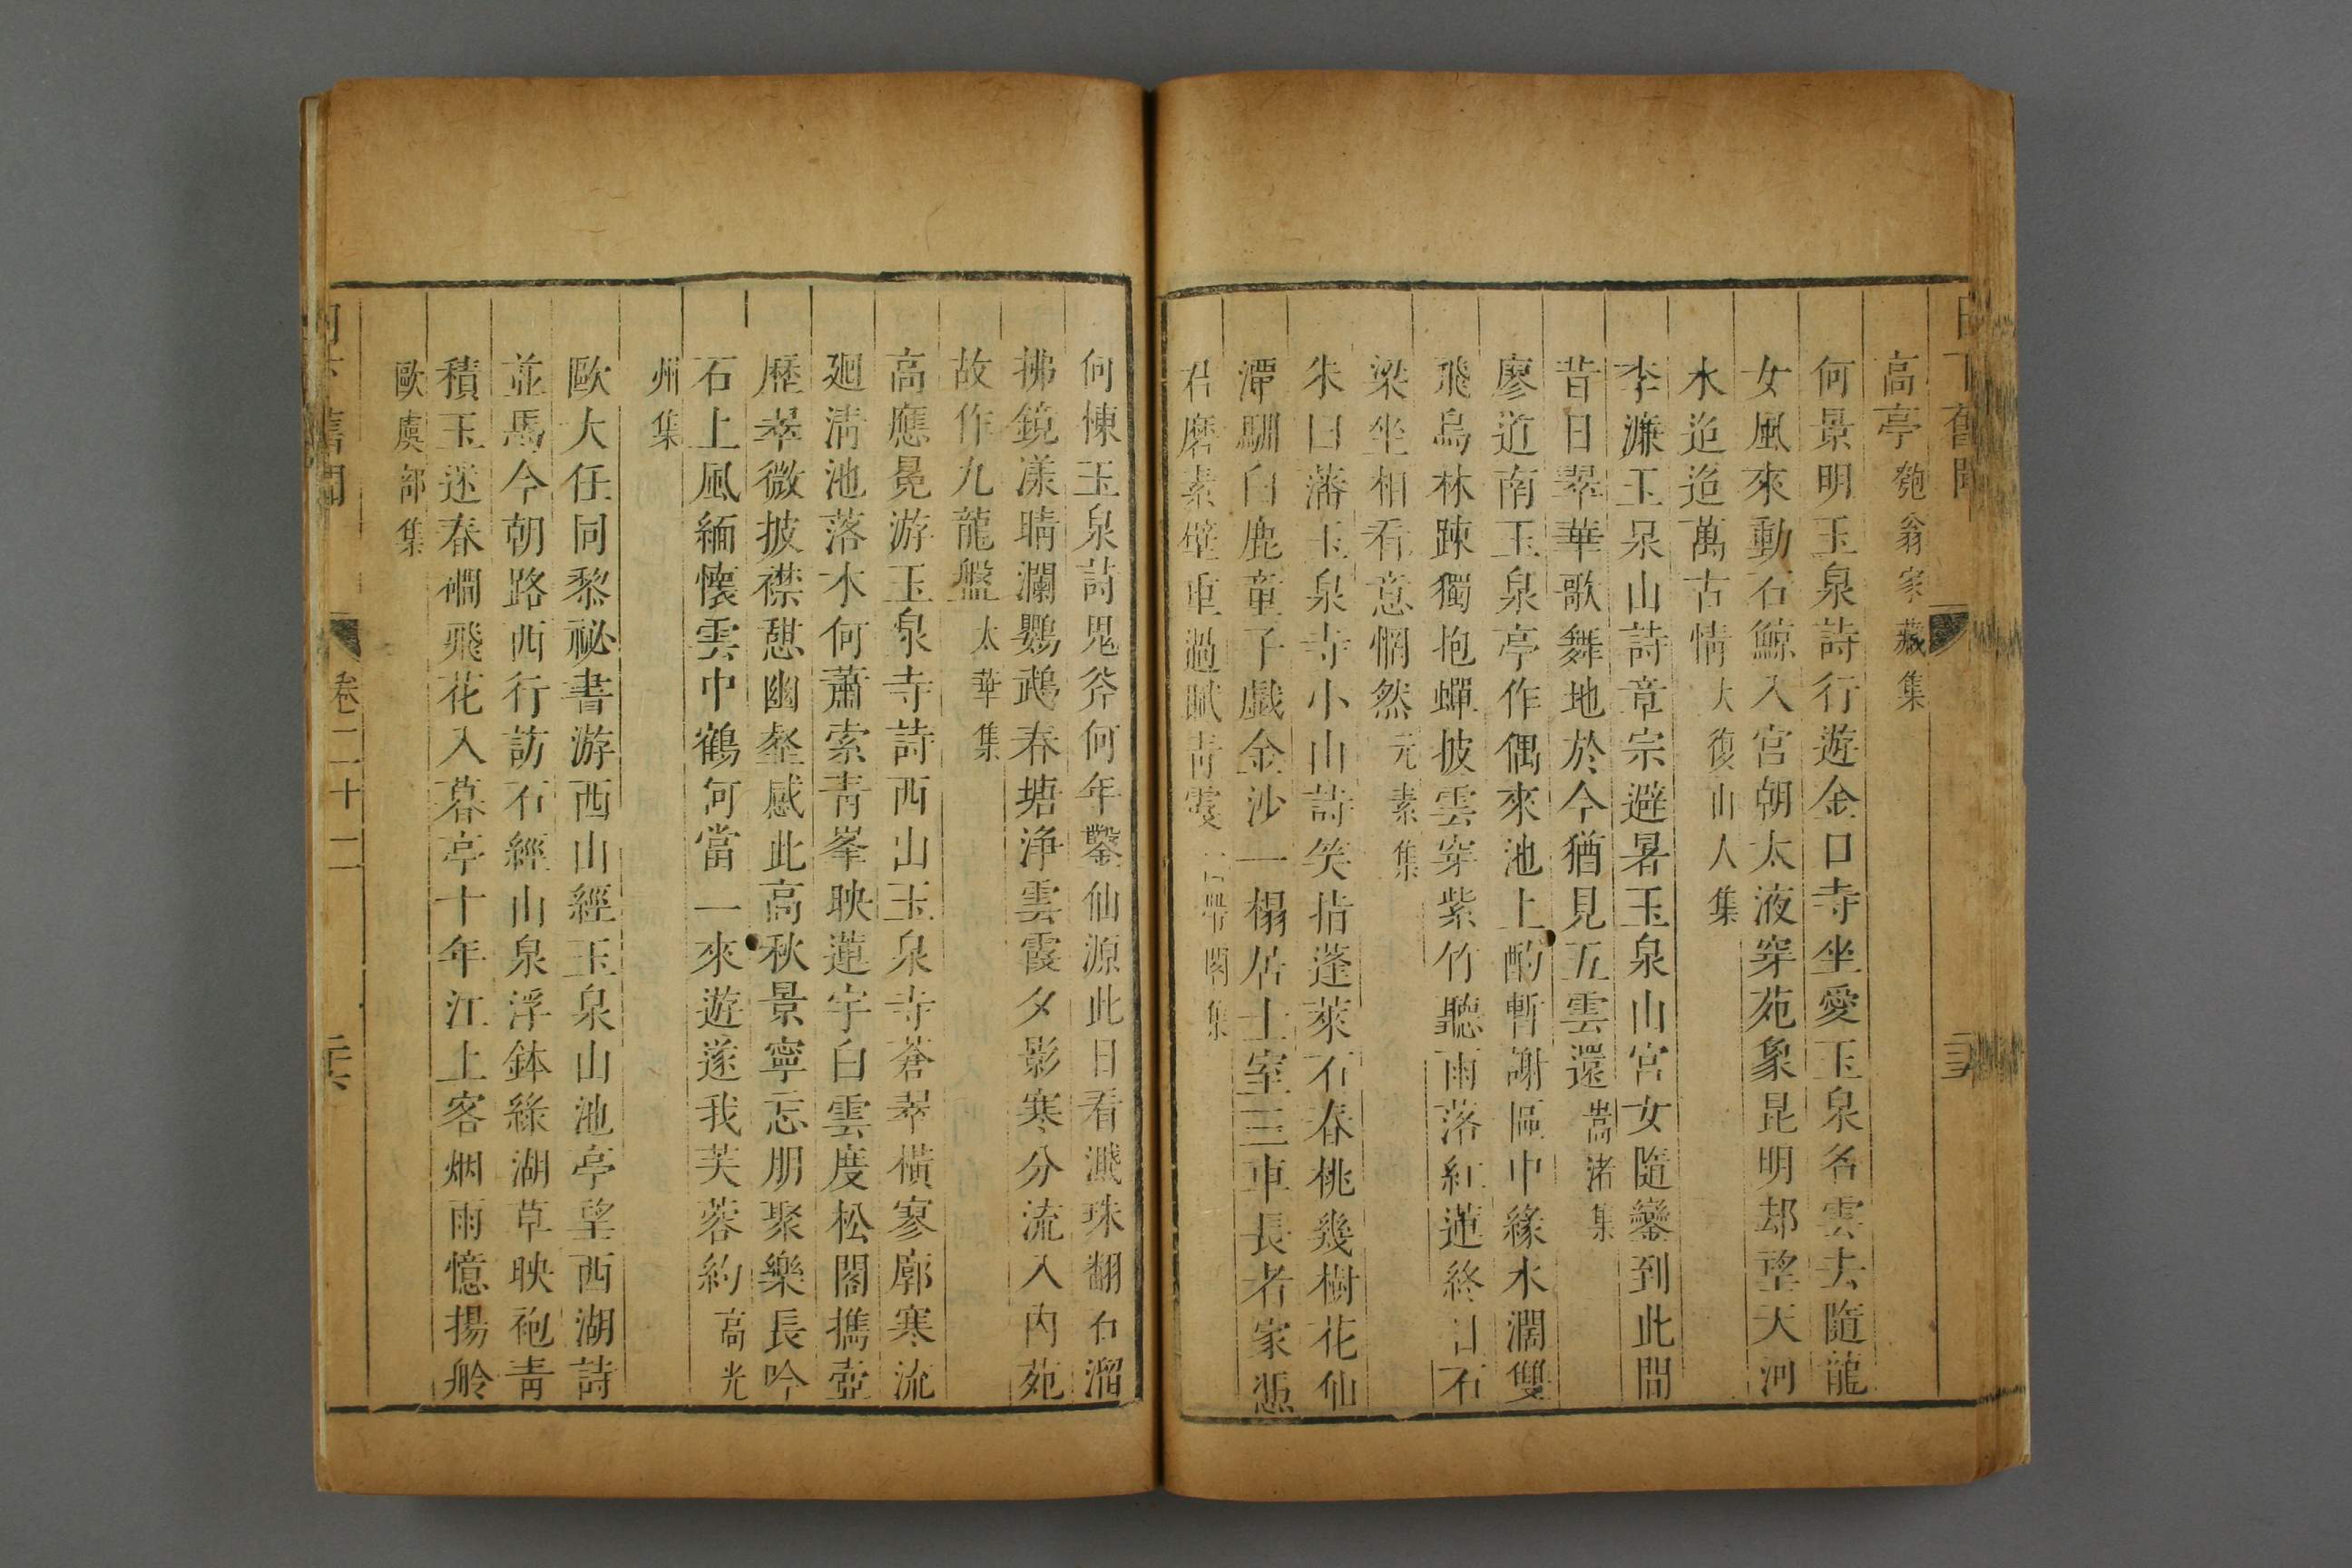 日下舊聞
高亭匏翁家藏集
何景明玉泉詩行遊金口寺坐愛玉泉名雲去隨龍
女風來動石鯨入宮朝太液穿苑象昆明却望天河
水迢迢萬古情大復山人集
李濂玉泉山詩章宗避暑玉泉山宮女隨鑾到此間
昔日翠華歌舞地於今猶見五雲還嵩渚集
廖道南玉泉亭作偶來池上酌暫謝區中緣水濶雙
飛鳥林疎獨抱蟬披雲穿紫竹聽雨落紅蓮終日石
梁坐相看意惘然元素集
朱曰藩玉泉寺小山詩笑拈蓬萊石春桃幾樹花仙
潭馴白鹿童子戱金沙一榻居士室三車長者家憑
君磨素壁重過賦靑霞集
何棟玉泉詩鬼斧何年鑿仙源此日看濺珠翻石溜
拂鏡漾晴瀾鸚鵡春塘淨雲霞夕影寒分流入内苑
故作九龍盤太華集
高應冕游玉泉寺詩西山玉泉寺蒼翠橫寥廓寒流
廻淸池落木何蕭索靑峯映蓮宇白雲度松閣擕壺
歷翠微披襟憇幽壑感此高秋景寧忘朋聚樂長吟
石上風緬懷雲中鶴何當一來遊遂我芙蓉約高光
州集
歐大任同黎祕書游西山經玉泉山池亭望西湖詩
並馬今朝路西行訪石經山泉浮鉢綠湖草映袍靑
積玉迷春澗飛花入暮亭十年江上客烟雨憶揚舲
歐虞部集
卷二十二